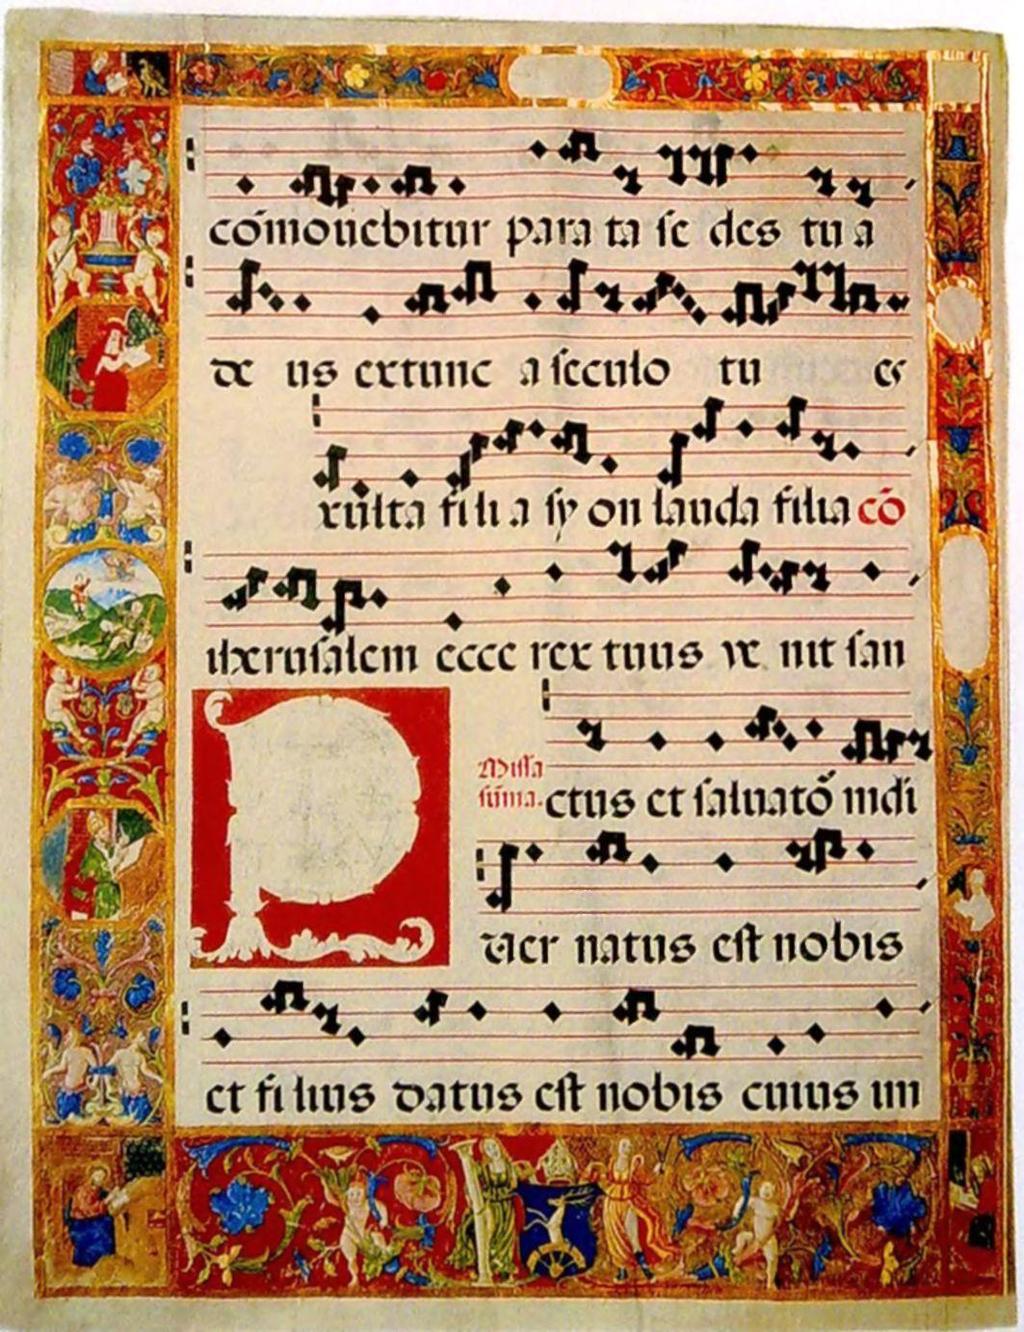 cōmouebitur para ta se des tu a
de us extunc a seculo tu es
xulta fili a syon lauda filia cō
iherusalem ecce rex tuus ve nit san
Missa
suma. ctus et saluatō mdi
uer natus est nobis
et filius datus est nobis cuius im